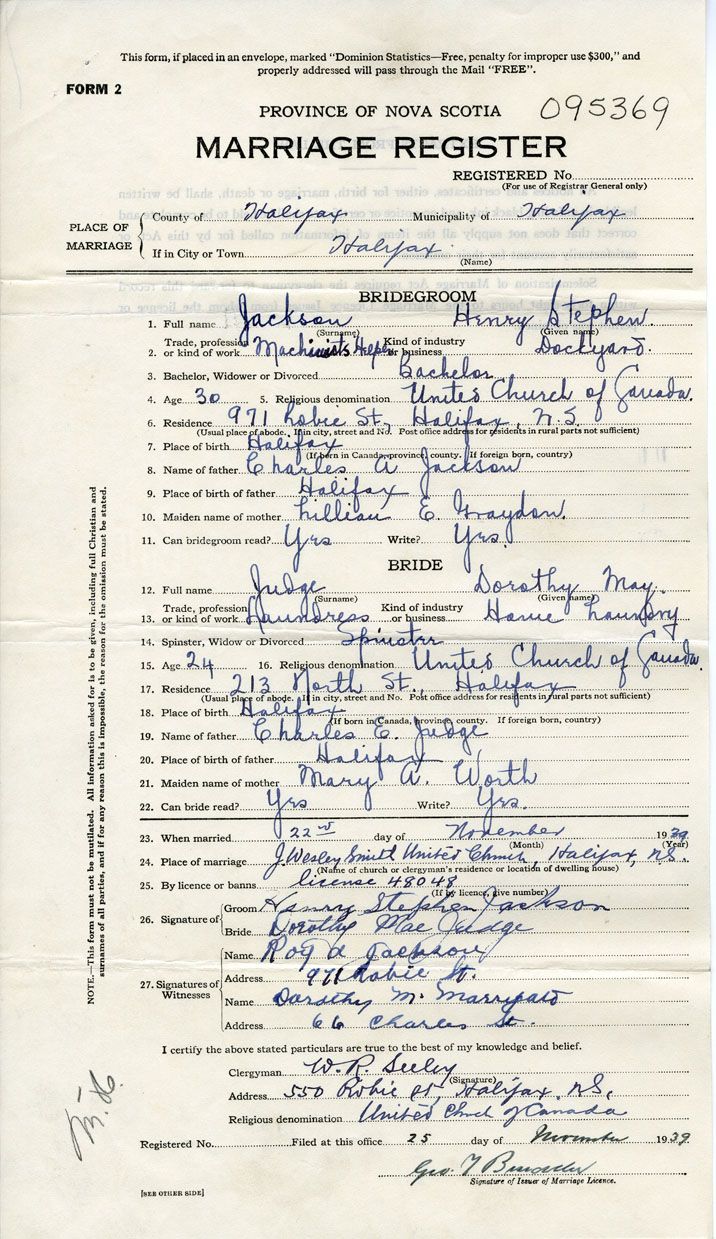 This form, if placed in an envelope, marked "Dominion Statistics—Free, penalty for improper use $300," and
properly addressed will pass through the Mail "FREE".
FORM 2
PROVINCE OF NOVA SCOTIA 095369
MARRIAGE REGISTER
REGISTERED No
(For use of Registrar General only)
PLACE OF MARRIAGE
County of Halifax Municipality of Halifax
If in City or Town Halifax
(Name)
BRIDEGROOM
1. Full name Jackson Henry Stephen
(Surname) (Given name)
2. Trade, profession or kind of work Machinists Helper Kind of industry or business Dockyard.
3. Bachelor, Widower or Divorced Bachelor
4. Age 30 5. Religious denomination United Church of Canada.
6. Residence 971 Robie St., Halifax, N.S.
(Usual place of abode. If in city, street and No. Post office address for residents in rural parts not sufficient)
7. Place of birth Halifax
(If born in Canada, province, county. If foreign born, country)
8. Name of father Charles A Jackson
9. Place of birth of father Halifax
10. Maiden name of mother Lillian E. Graydon.
11. Can bridegroom read? Yes Write? Yes.
BRIDE
12. Full name Judge Dorothy May.
(Surname) (Given name)
13. Trade, profession or kind of work Laundress Kind of industry or business Home Laundry
14. Spinster, Widow or Divorced Spinster
15. Age 24 16. Religious denomination United Church of Canada.
17. Residence 213 North St., Halifax
(Usual place of abode. If in city, street and No. Post office address for residents in rural parts not sufficient)
18. Place of birth Halifax
(If born in Canada, province, county. If foreign born, country)
19. Name of father Charles E. Judge
20. Place of birth of father Halifax
21. Maiden name of mother Mary A. Worth
22. Can bride read? Yes Write? Yes.
23. When married 22nd day of November 1939
(Month) (Year)
24. Place of marriage J. Wesley Smith United Church, Halifax, N.S.
(Name of church or clergyman's residence or location of dwelling house)
25. By licence or banns license 48048
(If by licence, give number)
26. Signature of
Groom Henry Stephen Jackson
Bride Dorothy Mae Judge
27. Signatures of Witnesses
Name Roy A Jackson
Address 971 Robie St.
Name Dorothy M. Marryatt
Address 66 Charles St.
I certify the above stated particulars are true to the best of my knowledge and belief.
Clergyman W. R. Seeley
(Signature)
Address 550 Robie St, Halifax, N.S.
Religious denomination United Church of Canada
Registered No. Filed at this office 25 day of November 1939
Geo. T
Signature of Issuer of Marriage Licence.
[SEE OTHER SIDE]
NOTE.—This form must not be mutilated. All information asked for is to be given, including full Christian and
surnames of all parties, and if for any reason this is impossible, the reason for the omission must be stated.